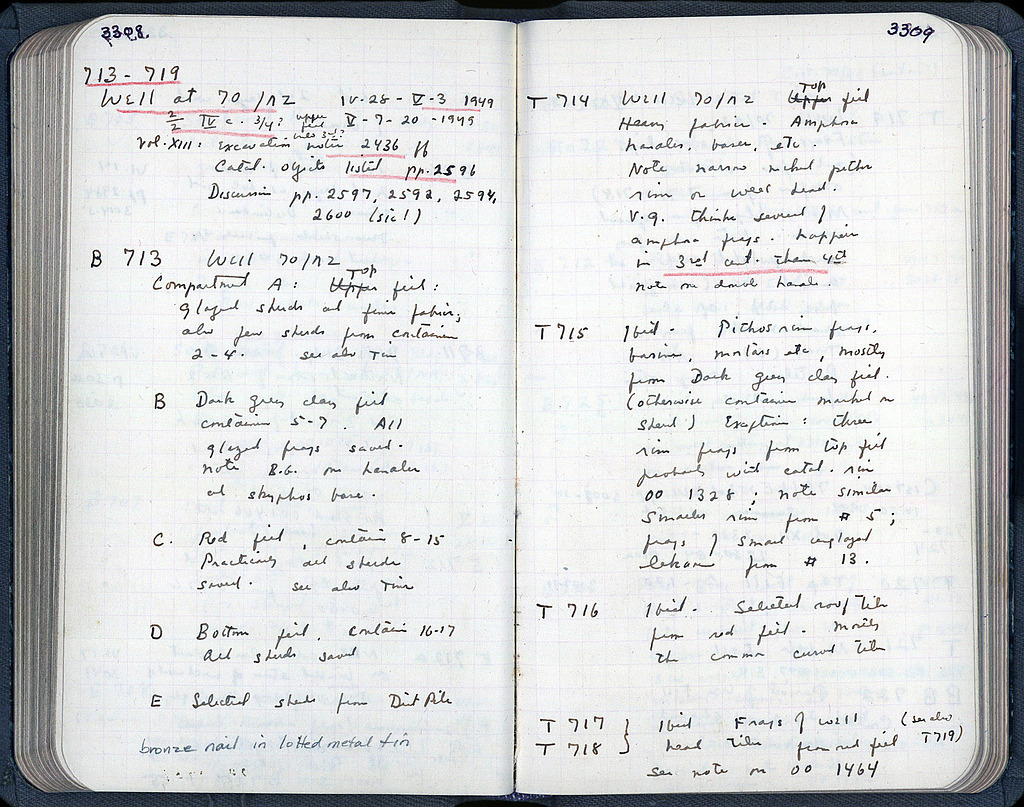 3308.
713 - 719
Well at 70/ΠΖ IV-28 - V-3 1949
2/2 IV c. 3/4? upper fill V-7-20-1949
Vol. XIII: Excavation notes 2436 ff
Catal. objects listed pp. 2596
Discussion pp. 2597, 2592, 2594,
2600 (sic!)
B 713 Well 70/ΠΖ
Top
Compartment A: Upper fill:
glazed sherds and finer fabric;
also few sherds from container
2-4. see also Tin
B Dark grey clay fill
container 5-7. All
glazed frags saved.
Note B.G. on handle
and skyphos base.
C. Red fill, contain 8-15
Practically all sherds
saved. see also Tins
D Bottom fill, contain 16-17
All sherds saved
E Selected sherds from Dirt Pile
bronze nail in lotted metal tin
3309
Top
T 714 Well 70/ΠΖ Upper fill
Heavy fabric. Amphora
handles, bases, etc.
Note narrow necked pithos
rim or well head.
V.G. thinks several
amphora frags. happier
in 3rd cent. than 4th
note on double handle.
T 715 Ibid. Pithos rim frags,
basins, mortars etc, mostly
from Dark grey clay fill.
(otherwise container marked on
sherd) Exceptions: three
rim frags from top fill
probably with catal. rim
OO 1328; note similar
smaller rim from # 5;
frags of small unglazed
lekane from # 13.
T 716 Ibid. Selected roof tile
from red fill. Mostly
the common curved tile
T 717 } Ibid Frags of well (see also
T 718 } head tiles from red fill T719)
see note on OO 1464